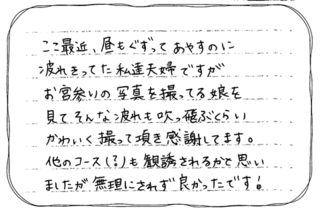 ここ最近、昼もぐずってあやすのに
疲れきってた私達夫婦ですが
お宮参りの写真を撮ってる娘を
見てそんな疲れも吹っ飛ぶくらい
かわいく撮って頂き感謝してます。
他のコース(?)も勧誘されるかで思い
ましたが無理にされず良かったです!